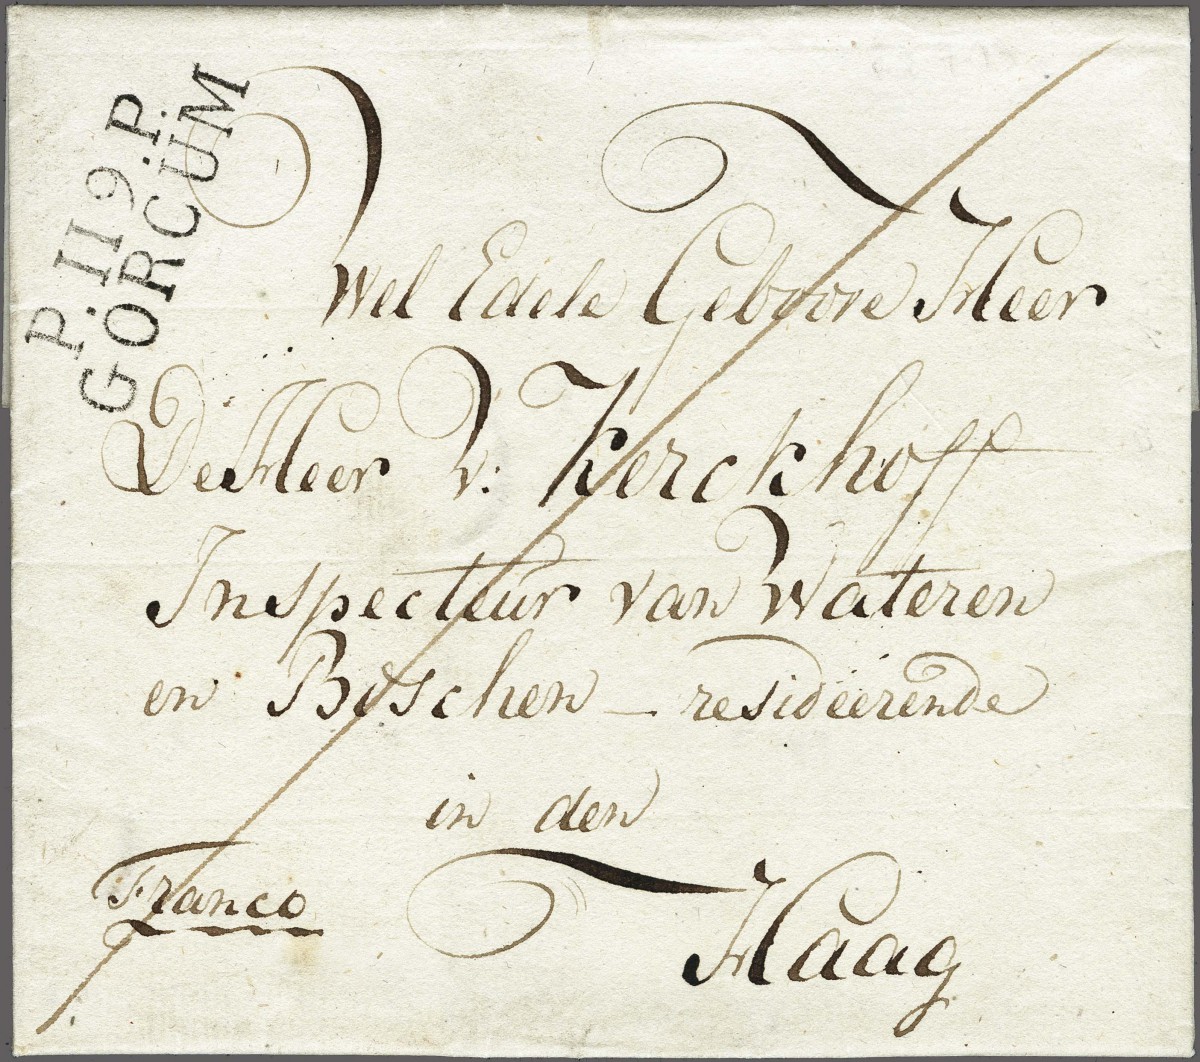 P.119.P.
GORCUM
Wel Edele Geboore Heer
De Heer V: Kerckhoff
Inspecteur van Wateren
en Boschen – resideerende
in den
Haag
Franco